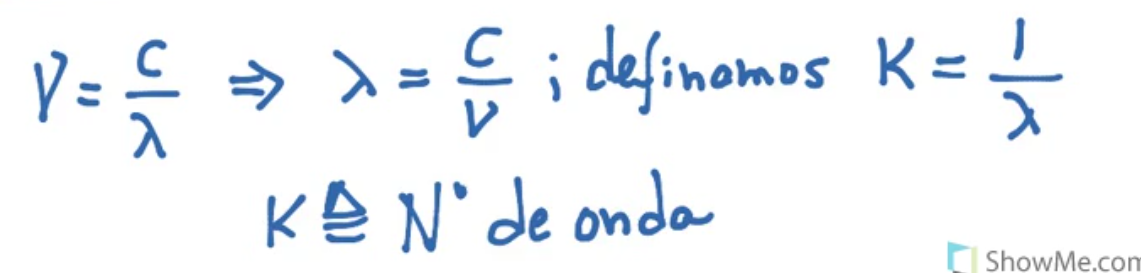 ν = c/λ ⇒ λ = c/ν ; definamos K = 1/λ
K ≙ N° de onda
ShowMe.com